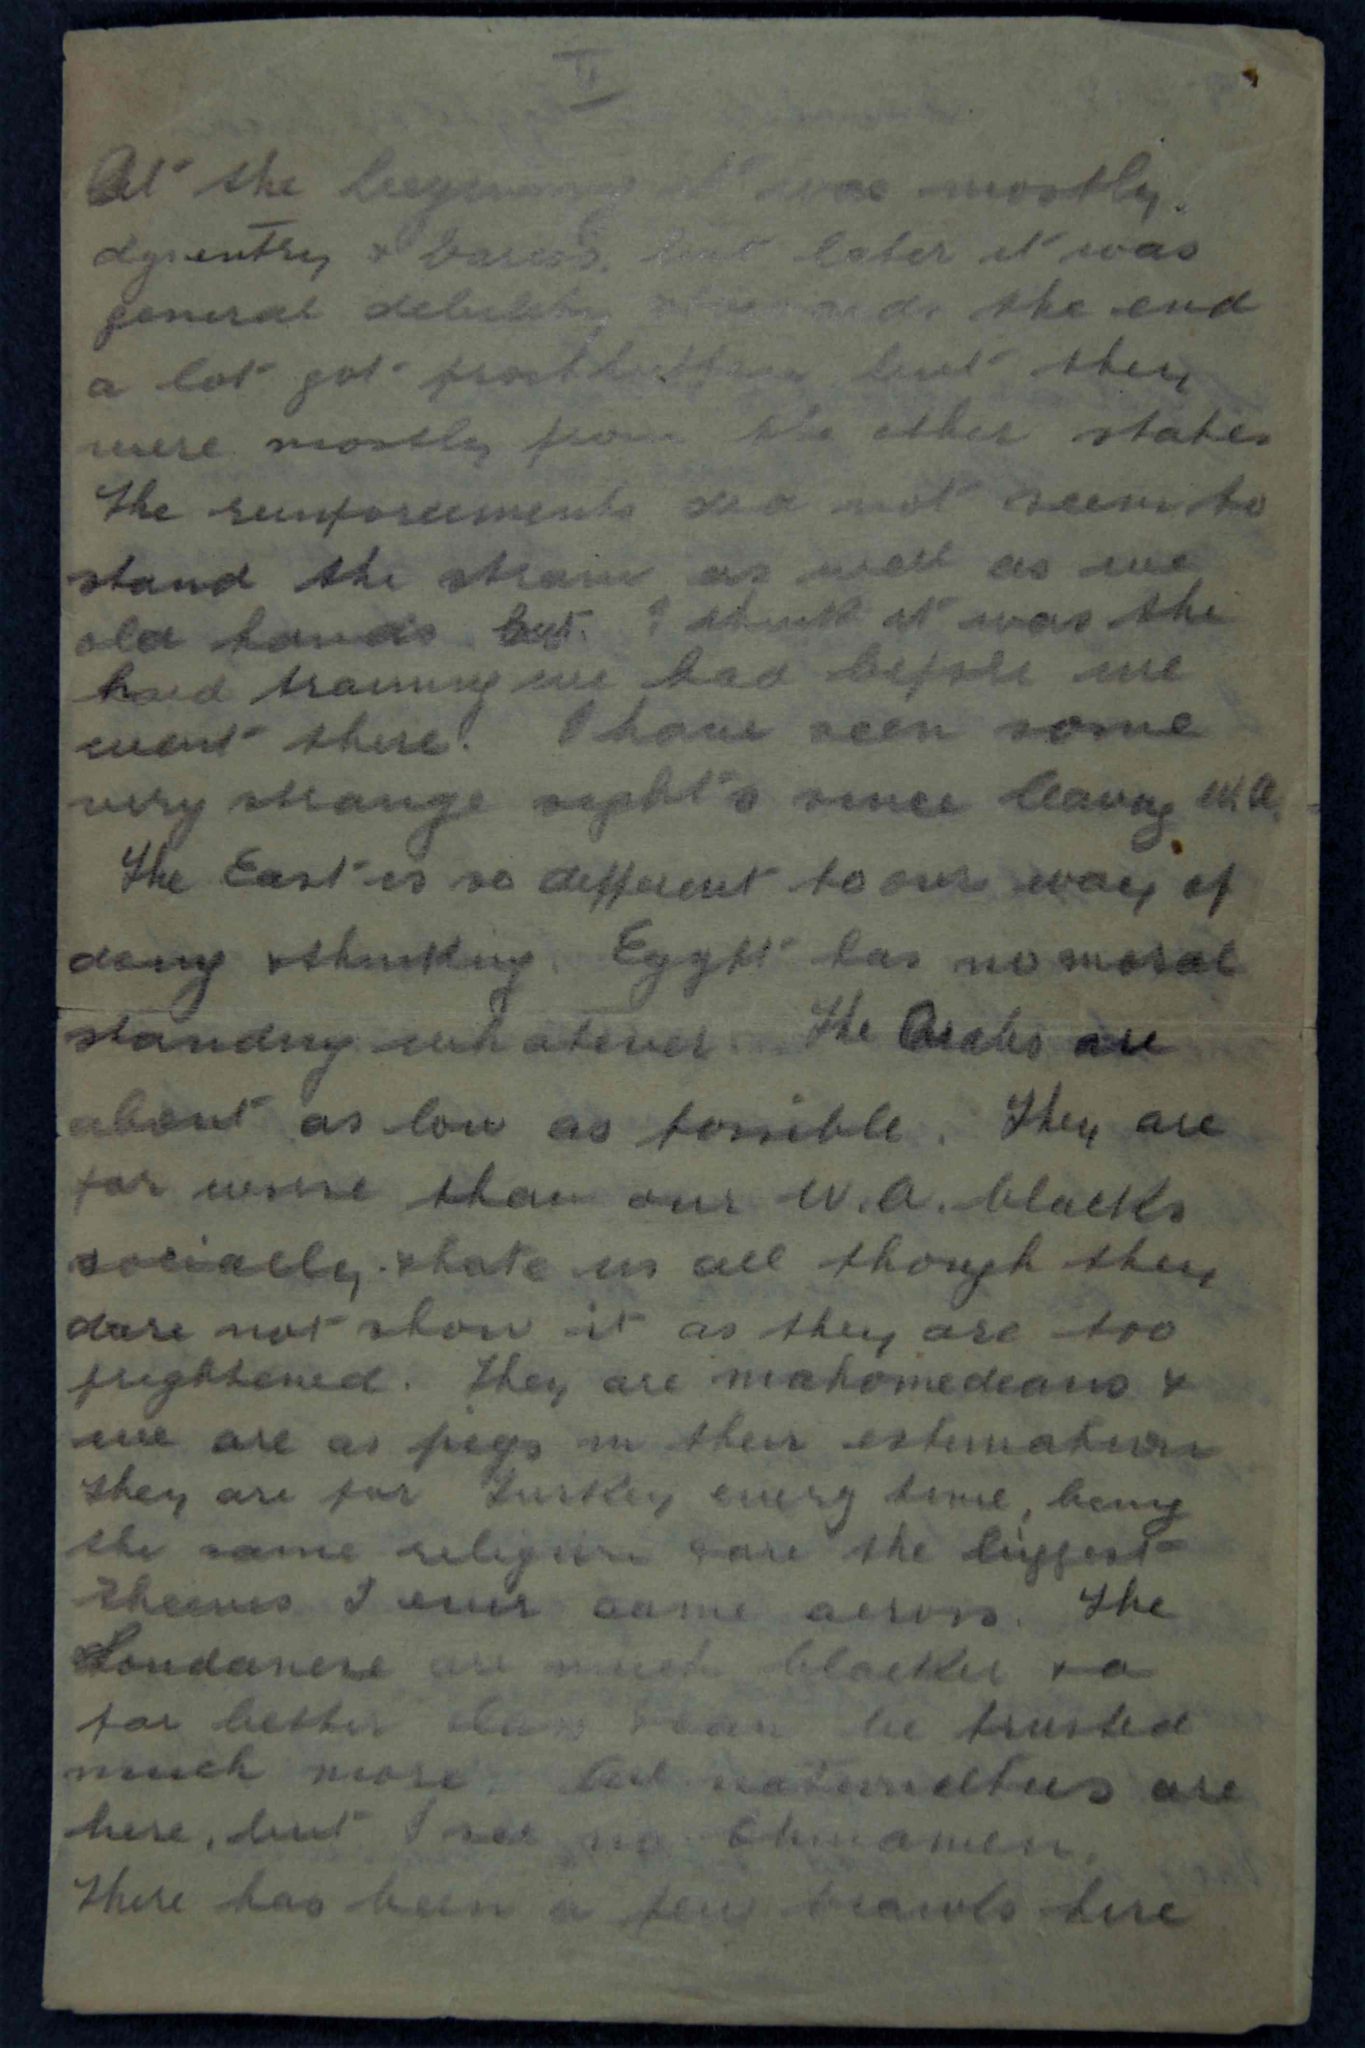 II
At the beginning it was mostly
dysentry & but later it was
general debility & towards the end
a lot got frostbitten but they
were mostly from the other states
The reinforcements did not seem to
stand the strain as well as we
old hands but. I think it was the
hard training we had before we
went there. I have seen some
very strange sight's since leaving W.A.
The East is so different to our way of
doing & thinking. Egypt has no moral
standing whatever. The Arabs are
about as low as possible. They are
far worse than our W.A. blacks
socially. & hate us all though they
dare not show it as they are too
frightened. They are mahomedeans &
we are as pigs in their estimation
they are for Turkey every time, being
the same religion & are the biggest
theives I ever came across. The
Soudanese are much blacker & a
far better class & can be trusted
much more. All nationalties are
here, but I see no Chinamen.
There has been a few brawls here